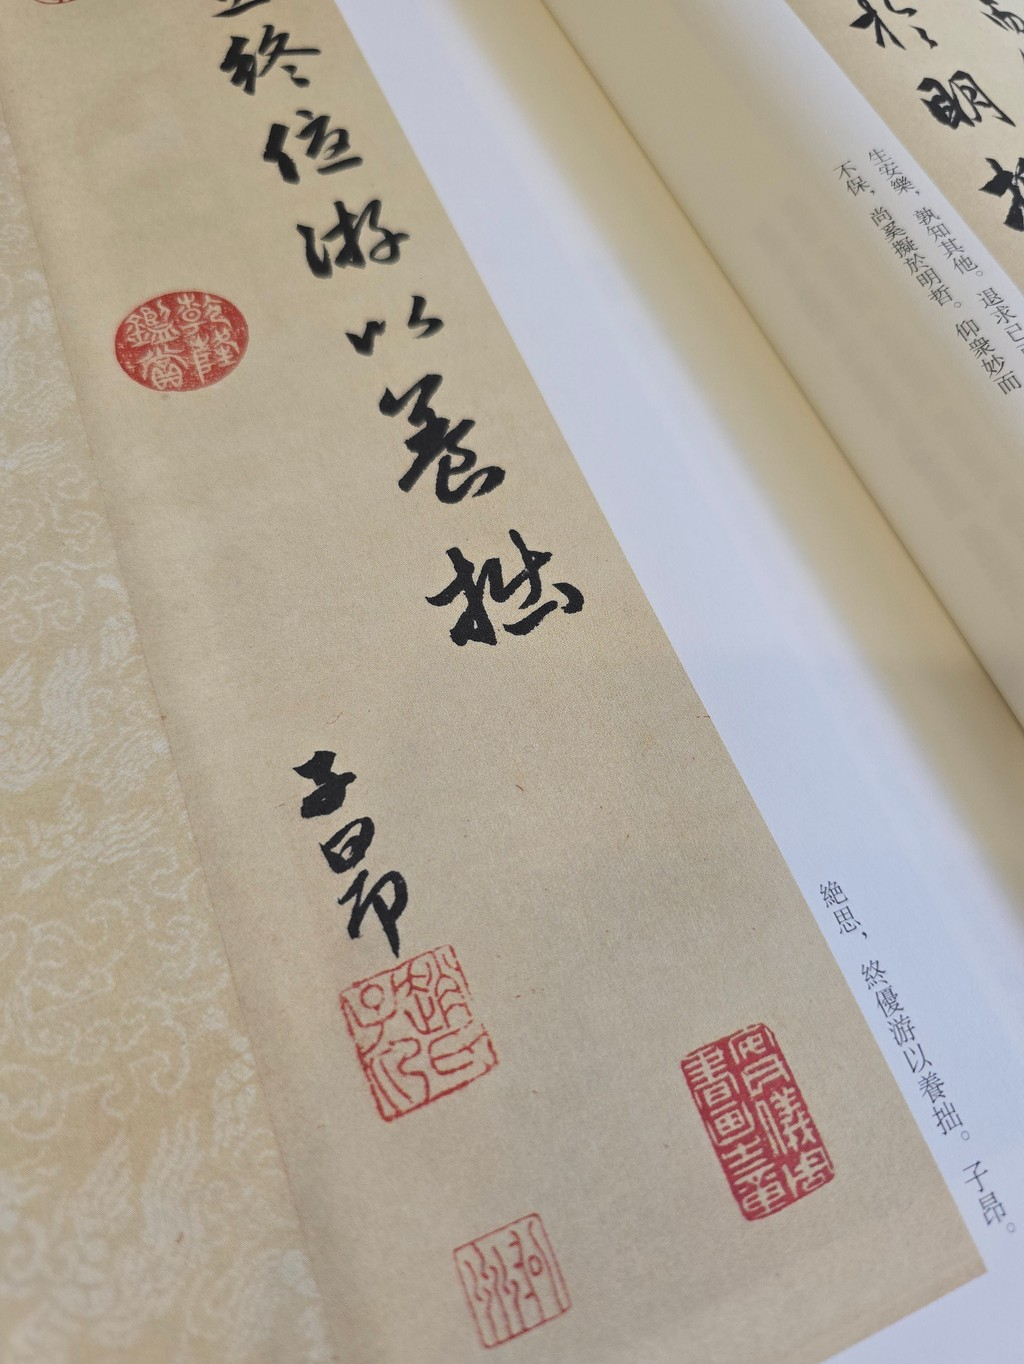 於明
生安樂，孰知其他。退求已
不保，尚奚擬於明哲。仰衆妙而
絶思，終優游以養拙。子昂。
終優游以養拙
子昂
趙氏子昂
安儀周書畫之章
乾隆鑑賞